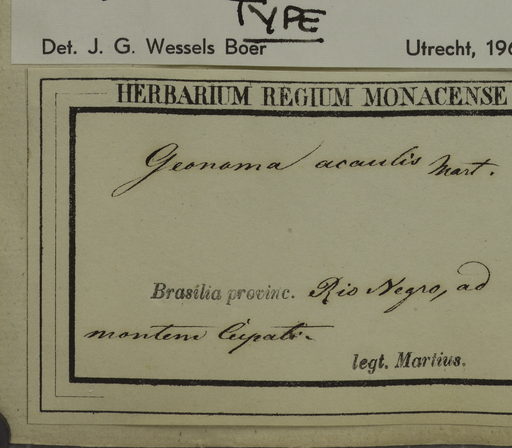 TYPE
Det. J. G. Wessels Boer Utrecht, 196
HERBARIUM REGIUM MONACENSE
Geonoma acaulis Mart.
Brasilia provinc. Rio Negro, ad
montem Cupati.
legt. Martius.